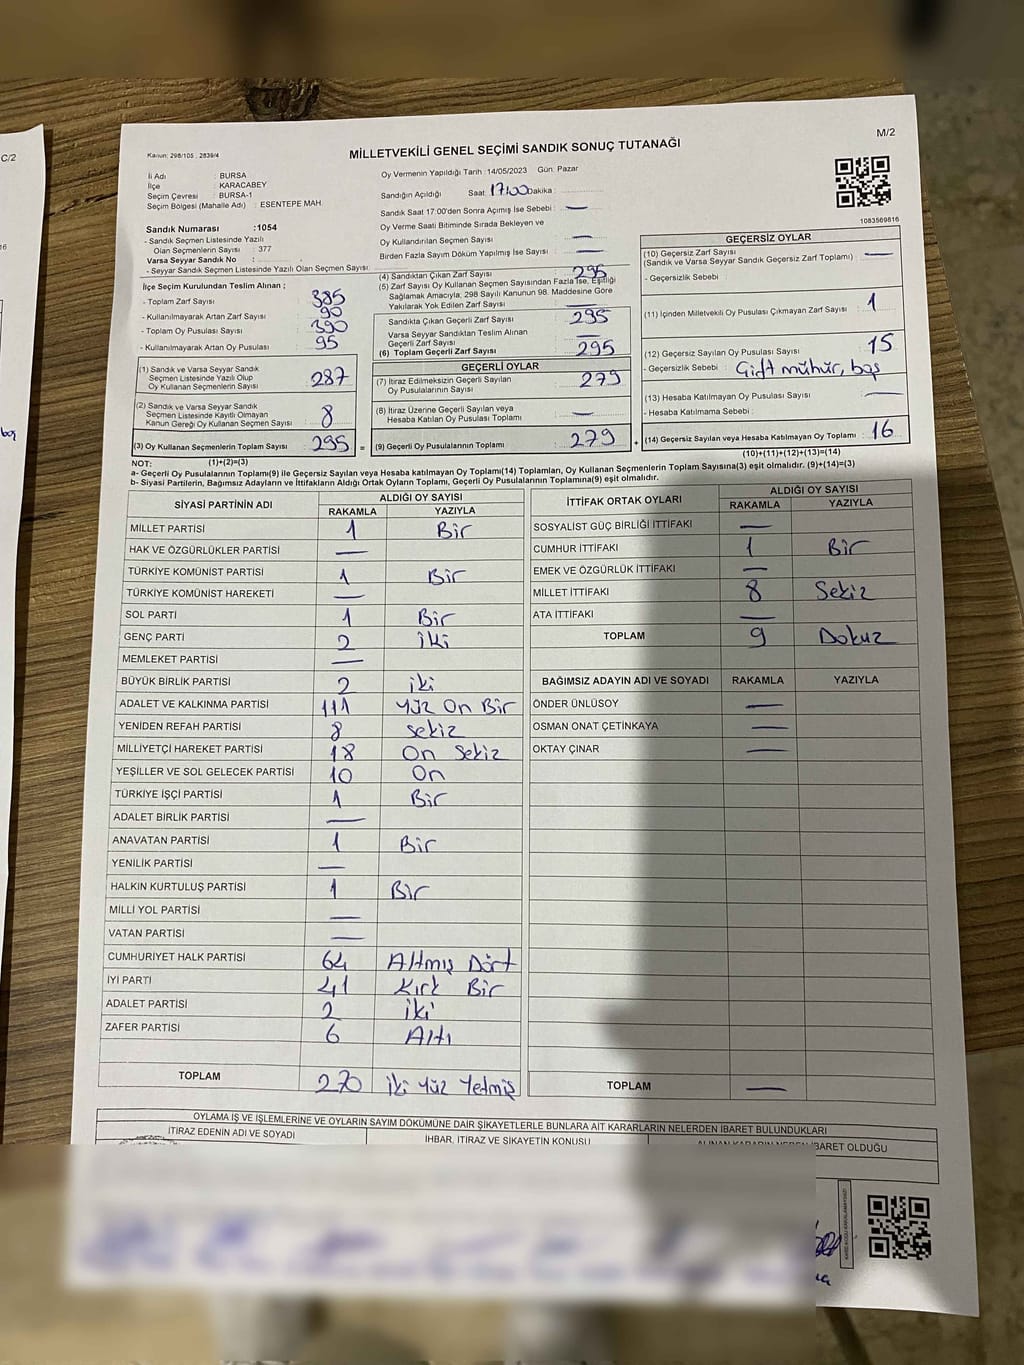 C/2
Kanun: 298/105 , 2839/4
MİLLETVEKİLİ GENEL SEÇİMİ SANDIK SONUÇ TUTANAĞI
M/2
İl Adı : BURSA
İlçe : KARACABEY
Seçim Çevresi : BURSA-1
Seçim Bölgesi (Mahalle Adı) : ESENTEPE MAH.
Oy Vermenin Yapıldığı Tarih : 14/05/2023 Gün: Pazar
Sandığın Açıldığı Saat: 17:00 Dakika :
Sandık Saat 17:00'den Sonra Açımış İse Sebebi : —
Oy Verme Saati Bitiminde Sırada Bekleyen ve
Oy Kullandırılan Seçmen Sayısı —
Birden Fazla Sayım Döküm Yapılmış İse Sayısı : —
1083569816
Sandık Numarası :1054
- Sandık Seçmen Listesinde Yazılı
Olan Seçmenlerin Sayısı : 377
Varsa Seyyar Sandık No :
- Seyyar Sandık Seçmen Listesinde Yazılı Olan Seçmen Sayısı:
İlçe Seçim Kurulundan Teslim Alınan ;
- Toplam Zarf Sayısı : 385
- Kullanılmayarak Artan Zarf Sayısı : 90
- Toplam Oy Pusulası Sayısı : 390
- Kullanılmayarak Artan Oy Pusulası : 95
(1) Sandık ve Varsa Seyyar Sandık
Seçmen Listesinde Yazılı Olup
Oy Kullanan Seçmenlerin Sayısı 287
(2) Sandık ve Varsa Seyyar Sandık
Seçmen Listesinde Kayıtlı Olmayan
Kanun Gereği Oy Kullanan Seçmen Sayısı 8
(3) Oy Kullanan Seçmenlerin Toplam Sayısı 295 =
(1)+(2)=(3)
(4) Sandıktan Çıkan Zarf Sayısı 295
(5) Zarf Sayısı Oy Kullanan Seçmen Sayısından Fazla İse, Eşitliği
Sağlamak Amacıyla, 298 Sayılı Kanunun 98. Maddesine Göre
Yakılarak Yok Edilen Zarf Sayısı : —
Sandıkta Çıkan Geçerli Zarf Sayısı 295
Varsa Seyyar Sandıktan Teslim Alınan
Geçerli Zarf Sayısı —
(6) Toplam Geçerli Zarf Sayısı 295
GEÇERLİ OYLAR
(7) İtiraz Edilmeksizin Geçerli Sayılan
Oy Pusulalarının Sayısı 279
(8) İtiraz Üzerine Geçerli Sayılan veya
Hesaba Katılan Oy Pusulası Sayısı —
(9) Geçerli Oy Pusulalarının Toplamı 279 +
GEÇERSİZ OYLAR
(10) Geçersiz Zarf Sayısı
(Sandık ve Varsa Seyyar Sandık Geçersiz Zarf Toplamı) : —
- Geçersizlik Sebebi :
(11) İçinden Milletvekili Oy Pusulası Çıkmayan Zarf Sayısı : 1
(12) Geçersiz Sayılan Oy Pusulası Sayısı : 15
- Geçersizlik Sebebi : Çift mühür, boş
(13) Hesaba Katılmayan Oy Pusulası Sayısı : —
- Hesaba Katılmama Sebebi :
(14) Geçersiz Sayılan veya Hesaba Katılmayan Oy Toplamı : 16
(10)+(11)+(12)+(13)=(14)
NOT:
a- Geçerli Oy Pusulalarının Toplamı(9) ile Geçersiz Sayılan veya Hesaba katılmayan Oy Toplamı(14) Toplamları, Oy Kullanan Seçmenlerin Toplam Sayısına(3) eşit olmalıdır. (9)+(14)=(3)
b- Siyasi Partilerin, Bağımsız Adayların ve İttifakların Aldığı Ortak Oyların Toplamı, Geçerli Oy Pusulalarının Toplamına(9) eşit olmalıdır.
SİYASİ PARTİNİN ADI ALDIĞI OY SAYISI
RAKAMLA YAZIYLA
MİLLET PARTİSİ 1 Bir
HAK VE ÖZGÜRLÜKLER PARTİSİ —
TÜRKİYE KOMÜNİST PARTİSİ 1 Bir
TÜRKİYE KOMÜNİST HAREKETİ —
SOL PARTİ 1 Bir
GENÇ PARTİ 2 iki
MEMLEKET PARTİSİ —
BÜYÜK BİRLİK PARTİSİ 2 iki
ADALET VE KALKINMA PARTİSİ 111 Yüz On Bir
YENİDEN REFAH PARTİSİ 8 Sekiz
MİLLİYETÇİ HAREKET PARTİSİ 18 On Sekiz
YEŞİLLER VE SOL GELECEK PARTİSİ 10 On
TÜRKİYE İŞÇİ PARTİSİ 1 Bir
ADALET BİRLİK PARTİSİ —
ANAVATAN PARTİSİ 1 Bir
YENİLİK PARTİSİ —
HALKIN KURTULUŞ PARTİSİ 1 Bir
MİLLİ YOL PARTİSİ —
VATAN PARTİSİ —
CUMHURİYET HALK PARTİSİ 64 Altmış Dört
İYİ PARTİ 41 Kırk Bir
ADALET PARTİSİ 2 iki
ZAFER PARTİSİ 6 Altı
TOPLAM 270 iki Yüz Yetmiş
İTTİFAK ORTAK OYLARI ALDIĞI OY SAYISI
RAKAMLA YAZIYLA
SOSYALİST GÜÇ BİRLİĞİ İTTİFAKI —
CUMHUR İTTİFAKI 1 Bir
EMEK VE ÖZGÜRLÜK İTTİFAKI —
MİLLET İTTİFAKI 8 Sekiz
ATA İTTİFAKI —
TOPLAM 9 Dokuz
BAĞIMSIZ ADAYIN ADI VE SOYADI RAKAMLA YAZIYLA
ÖNDER ÜNLÜSOY —
OSMAN ONAT ÇETİNKAYA —
OKTAY ÇINAR —
TOPLAM —
OYLAMA İŞ VE İŞLEMLERİNE VE OYLARIN SAYIM DÖKÜMÜNE DAİR ŞİKAYETLERLE BUNLARA AİT KARARLARIN NELERDEN İBARET BULUNDUKLARI
İTİRAZ EDENİN ADI VE SOYADI İHBAR, İTİRAZ VE ŞİKAYETİN KONUSU ALINAN KARARIN NEDEN İBARET OLDUĞU